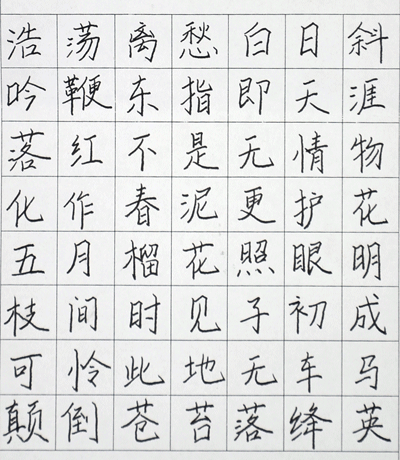 浩荡离愁白日斜
吟鞭东指即天涯
落红不是无情物
化作春泥更护花
五月榴花照眼明
枝间时见子初成
可怜此地无车马
颠倒苍苔落绛英